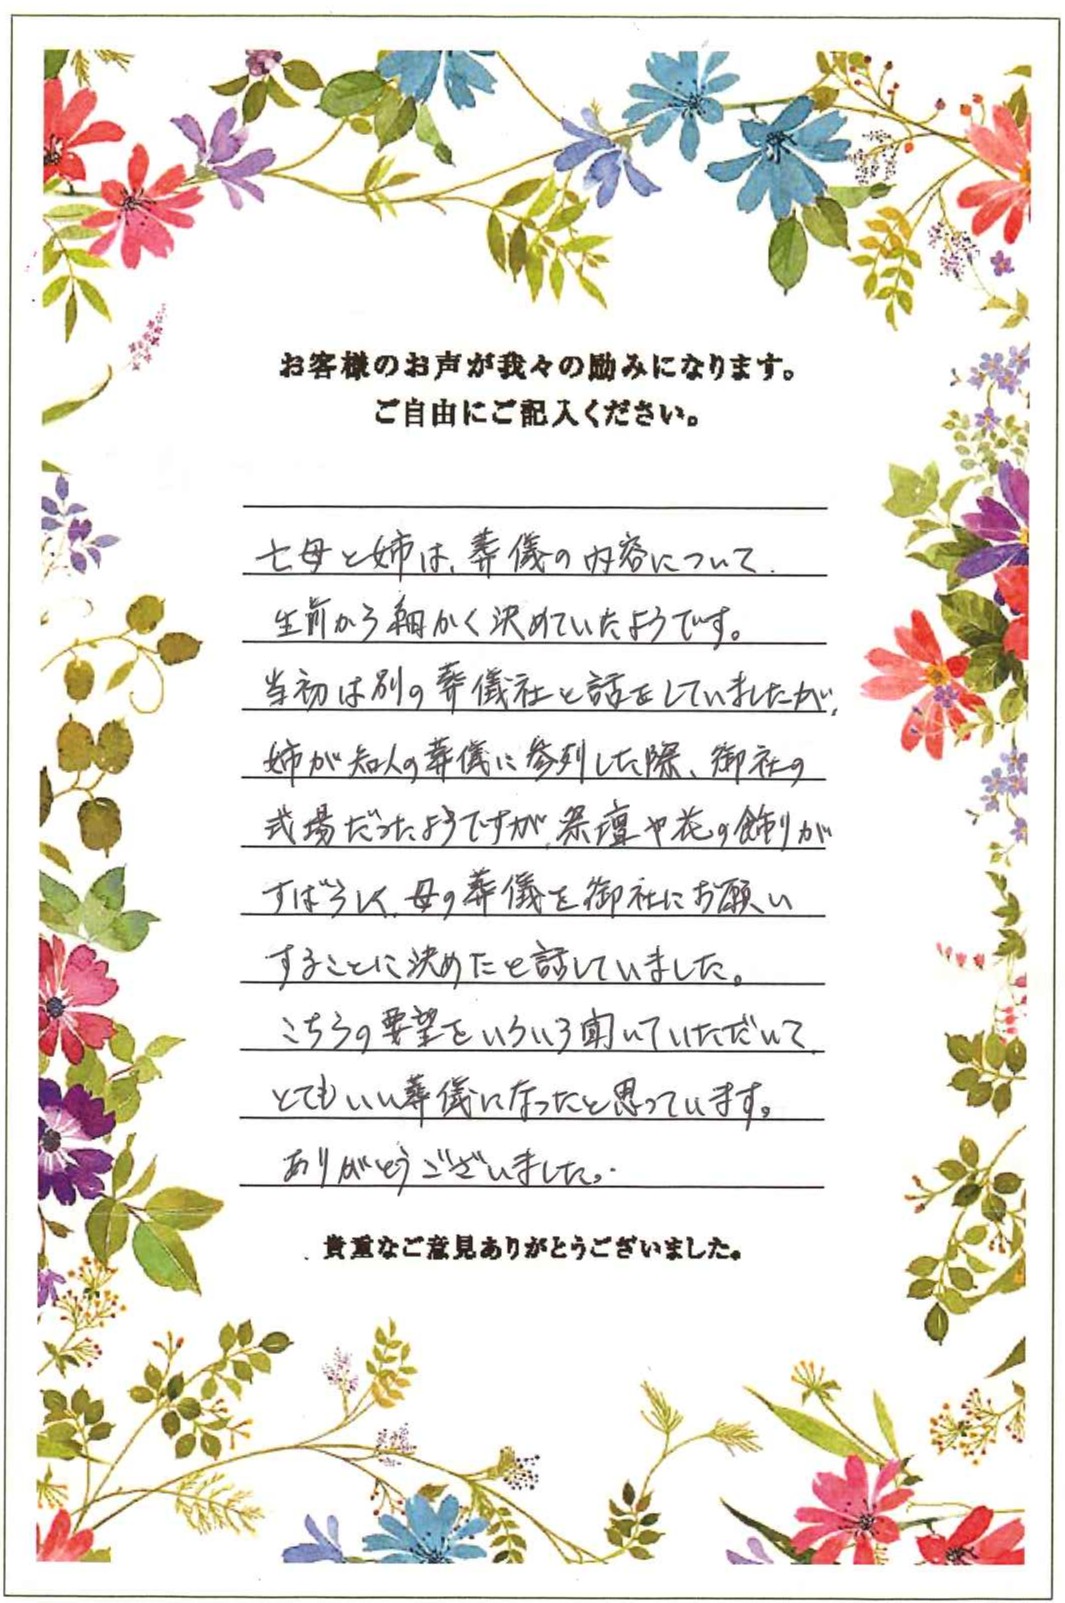 お客様のお声が我々の励みになります。
ご自由にご記入ください。
亡母と姉は、葬儀の内容について、
生前から細かく決めていたようです。
当初は別の葬儀社と話をしていましたが、
姉が知人の葬儀に参列した際、御社の
式場だったようですが、祭壇や花の飾りが
すばらしく、母の葬儀を御社にお願い
することに決めたと話していました。
こちらの要望をいろいろ聞いていただいて、
とてもいい葬儀になったと思っています。
ありがとうございました。
貴重なご意見ありがとうございました。